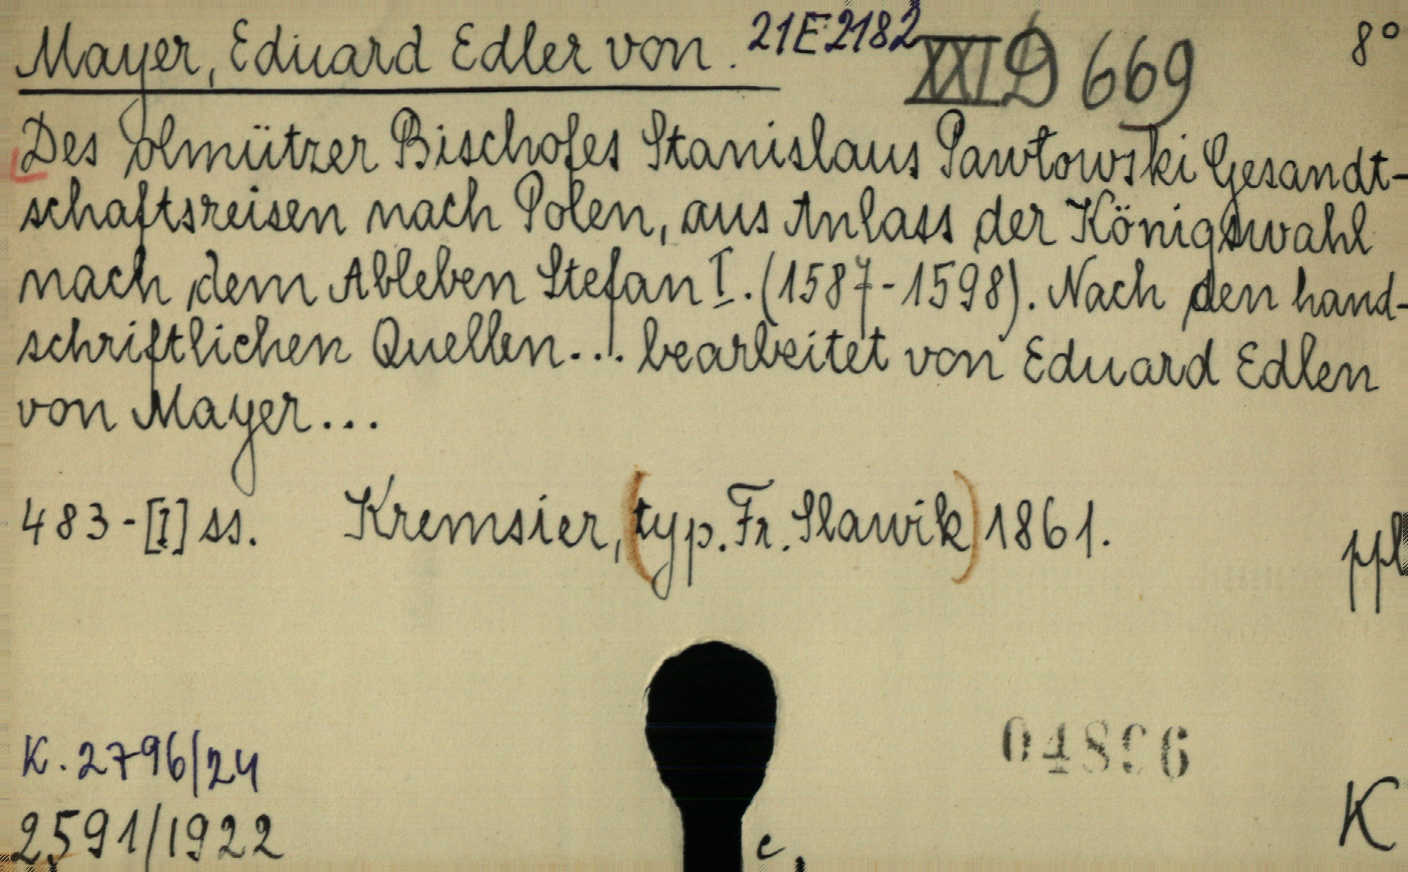 Mayer, Eduard Edler von. 21E2182 XXI D 669 8°
Des olmützer Bischofes Stanislaus Pawłowski Gesandt-
schaftsreisen nach Polen, aus Anlass der Königswahl
nach dem Ableben Stefan I. (1587-1598). Nach den hand-
schriftlichen Quellen... bearbeitet von Eduard Edlen
von Mayer...
483-[1] ss. Kremsier, (typ. Fr. Slawik) 1861.
ppl
04896
K. 2796/24
2591/1922
c.
K